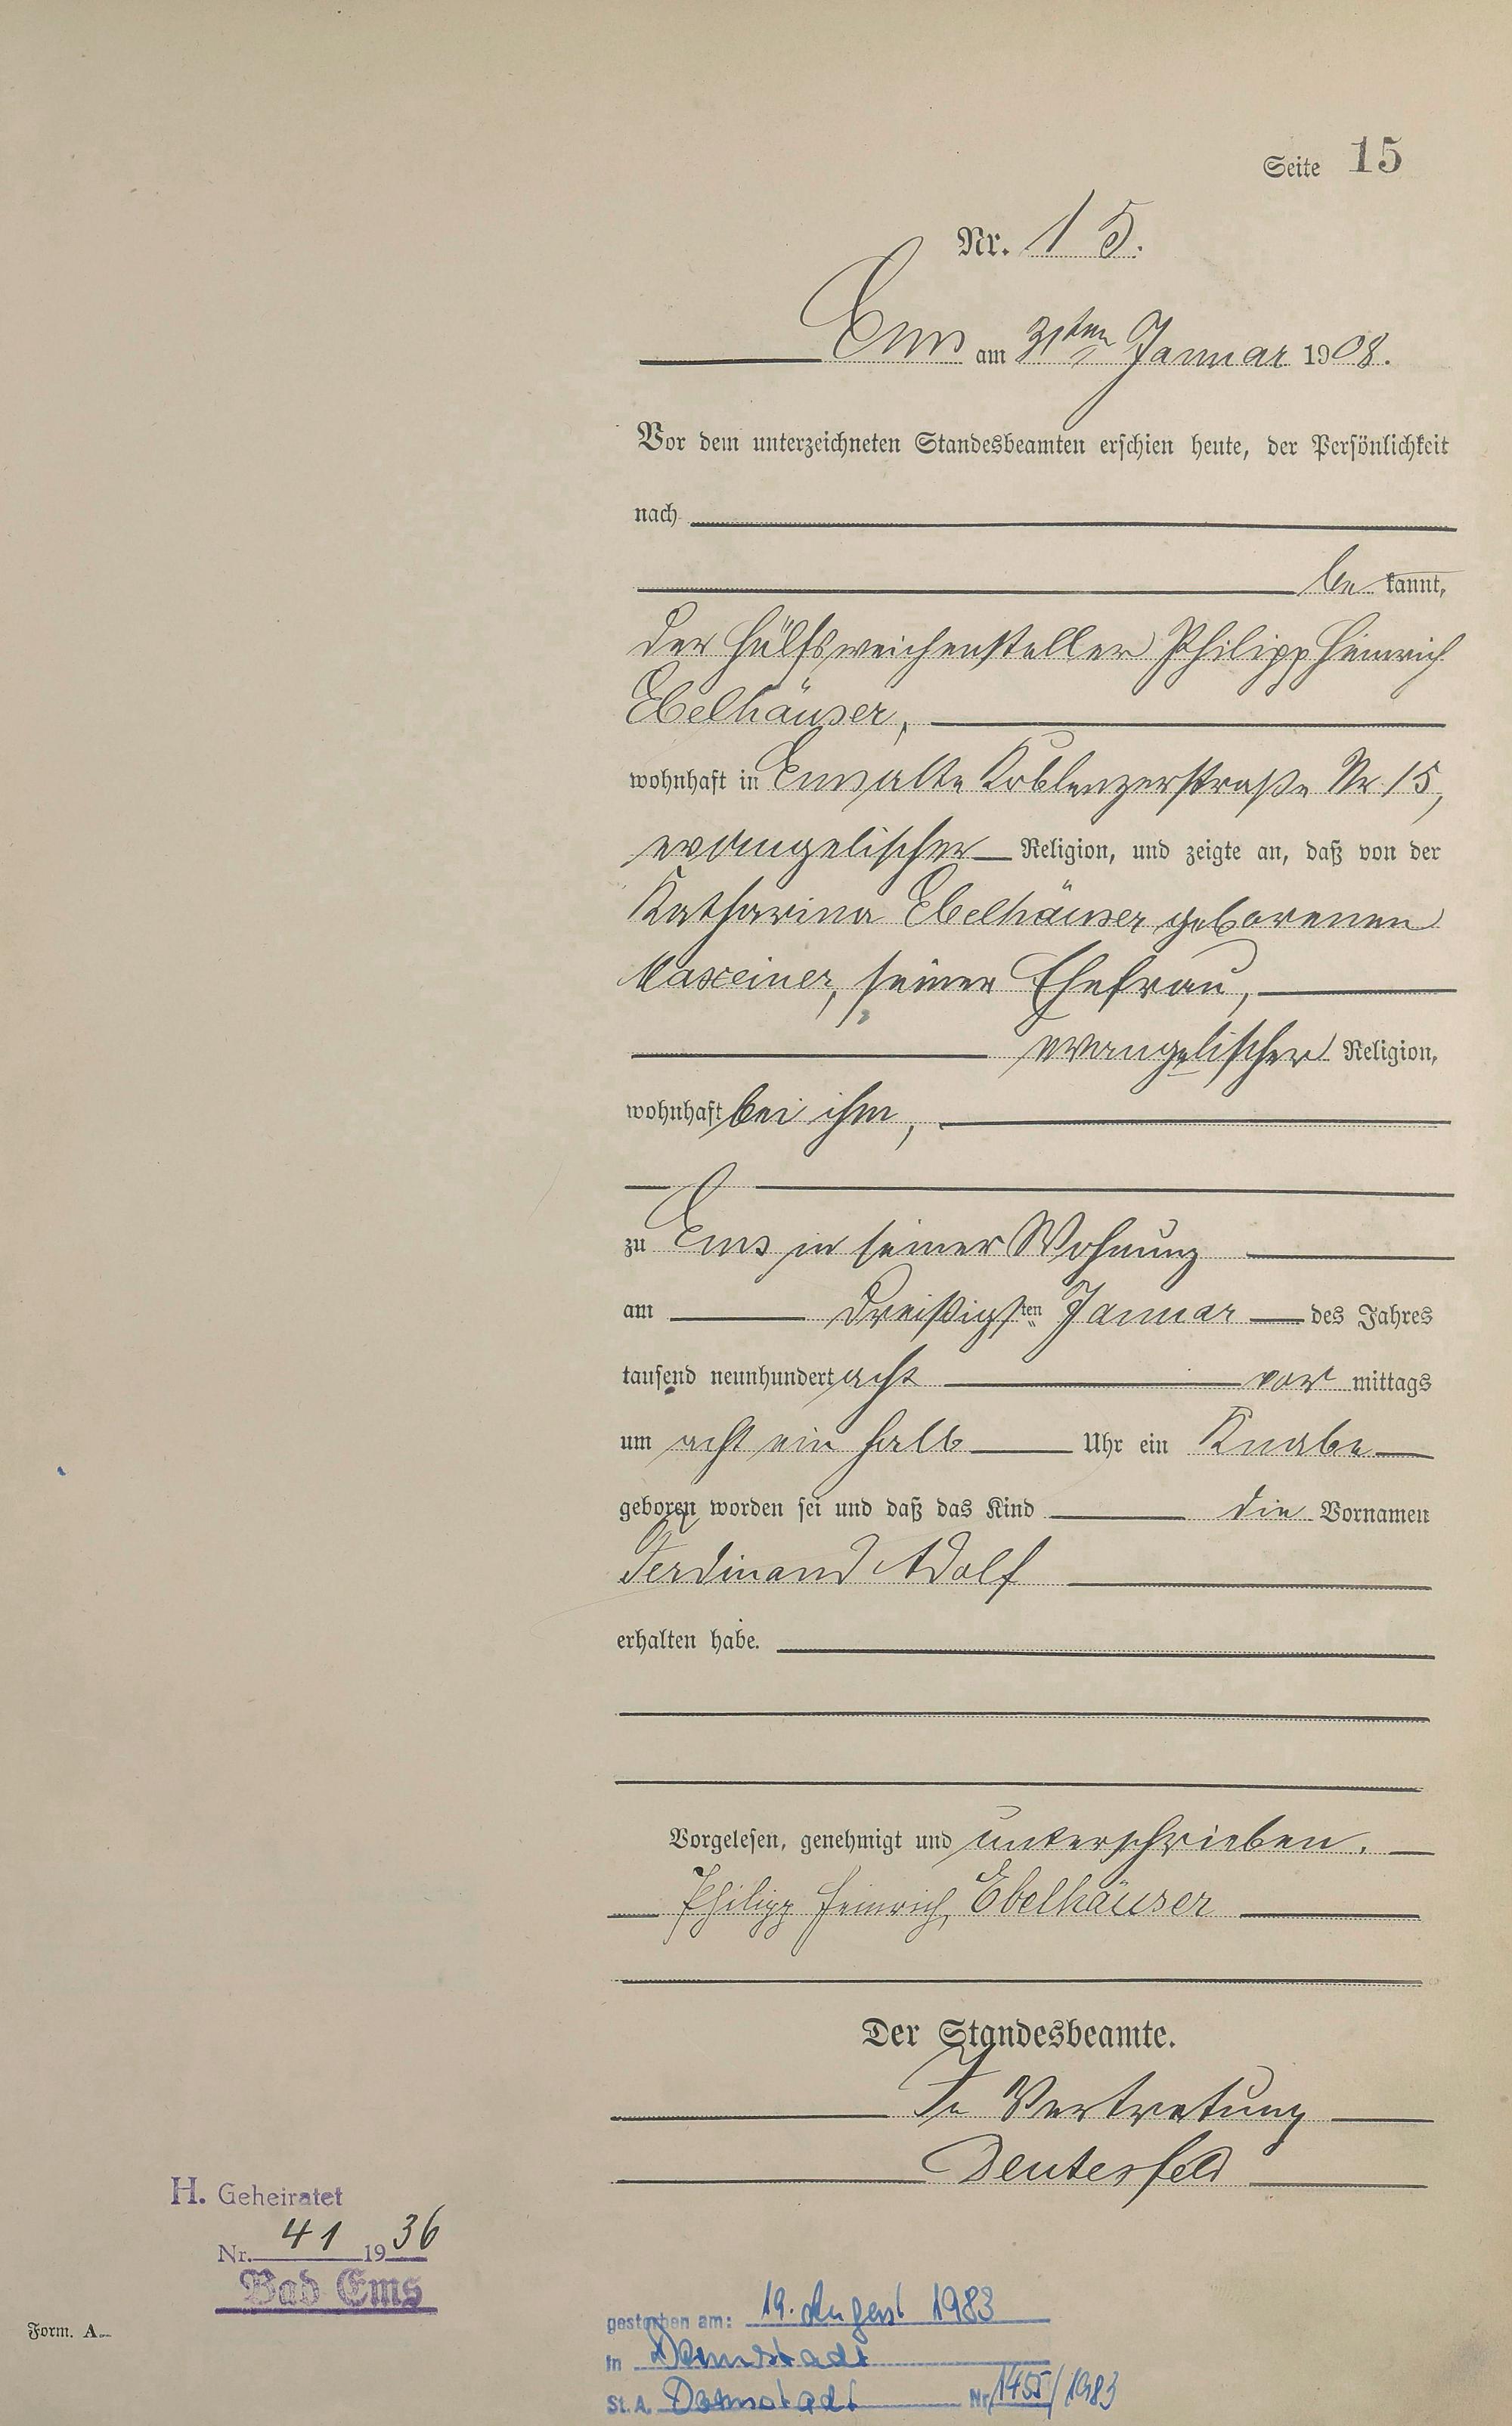 Seite 15
Nr. 15.
Ems am 31ten Januar 1908.
Vor dem unterzeichneten Standesbeamten erschien heute, der Persönlichkeit
nach
be kannt,
der Hülfsweichensteller Philipp Heinrich
Ebelhäuser,
wohnhaft in Ems, alte Koblenzerstraße Nr. 15,
evangelischer Religion, und zeigte an, daß von der
Katharina Ebelhäuser geborenen
Maxeiner, seiner Ehefrau,
evangelischer Religion,
wohnhaft bei ihm,
zu Ems in seiner Wohnung
am dreißigsten Januar des Jahres
tausend neunhundert acht vor mittags
um acht ein halb Uhr ein Knabe
geboren worden sei und daß das Kind die Vornamen
Ferdinand Adolf
erhalten habe.
Vorgelesen, genehmigt und unterschrieben.
Philipp Heinrich Ebelhäuser
Der Standesbeamte.
In Vertretung
Deutesfeld
H. Geheiratet
Nr. 41 1936
Bad Ems
Form. A.
gestorben am: 19. August 1983
in Darmstadt
St. A. Darmstadt Nr. 1455/1983